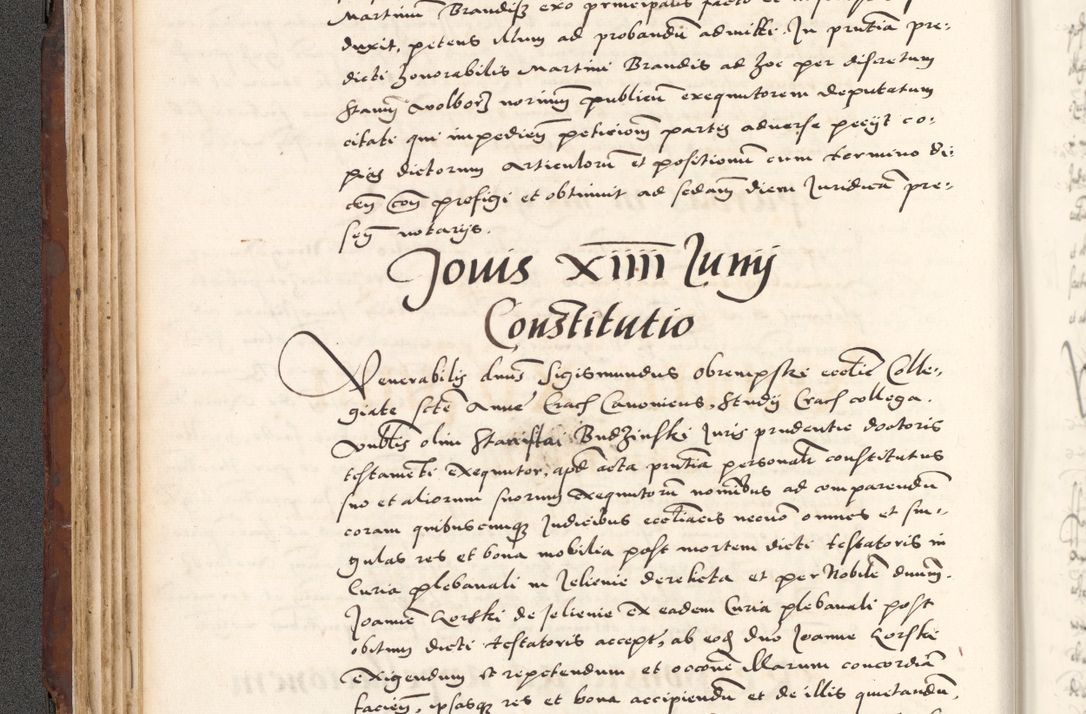 Martinũ Brandisz exo principalis facto et
duxit, petens illum ad probandũ admitti. In pñtia pre-
dicti honorabilis Martini Brandis ad hoc per discretum
Stanũ Wolborz notariũ publicũ exequutorem deputatum
citati qui impedieñ peticioñ partis adverse peciit co-
pias dictorum articulorũ et positionũ cum termino di-
ceñ coñ prefigi et obtinuit ad scdam diem Juridicã pre-
señ notarijs.
Jovis XIIII Junij
Constitutio
Venerabilis dñus Sigismundus Obrempski ecclie Colle-
giate scte Anne Crac Canonicus, Studij Crac collega.
Nobilis olim Stanislai Budzinski Juris prudentie doctoris
testamēti exequutor, apud acta pñtia personalr constitutus
suo et aliorum suorum exequutorũ nominibus ad comparendũ
coram quibuscunque Judicibus ecclīacis necnõ omnes et sin-
gulas res et bona mobilia post mortem dicti testatoris in
Curia plebanali in Jelienie derelicta et per Nobilẽ dnum.
Joannẽ Gorski de Jelienie ex eadem Curia plebanali post
obitum dicti testatoris accepta, ab eodẽ dno Joanne Gorski
exigendum et repetendum et occõne illarum concordiã
facieñ, ipsasque res et bona accipiendũ et de illis quietandũ,